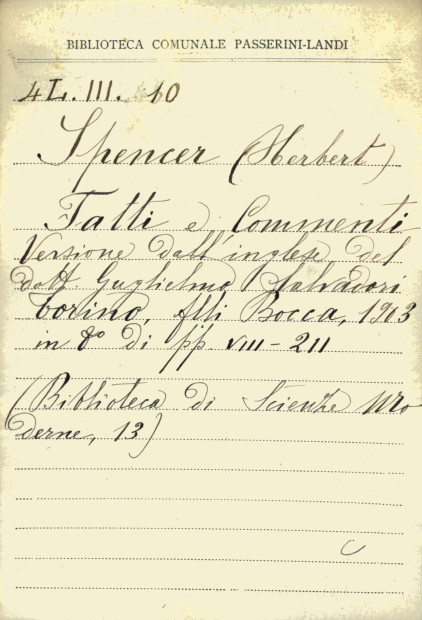 BIBLIOTECA COMUNALE PASSERINI-LANDI
4L. III. 10
Spencer (Herbert)
Fatti e Commenti
Versione dall'inglese del
dott. Guglielmo Salvadori
Torino, flli Bocca, 1903
in 8° di pp. VIII-211
(Biblioteca di Scienze Mo
derne, 13)
C